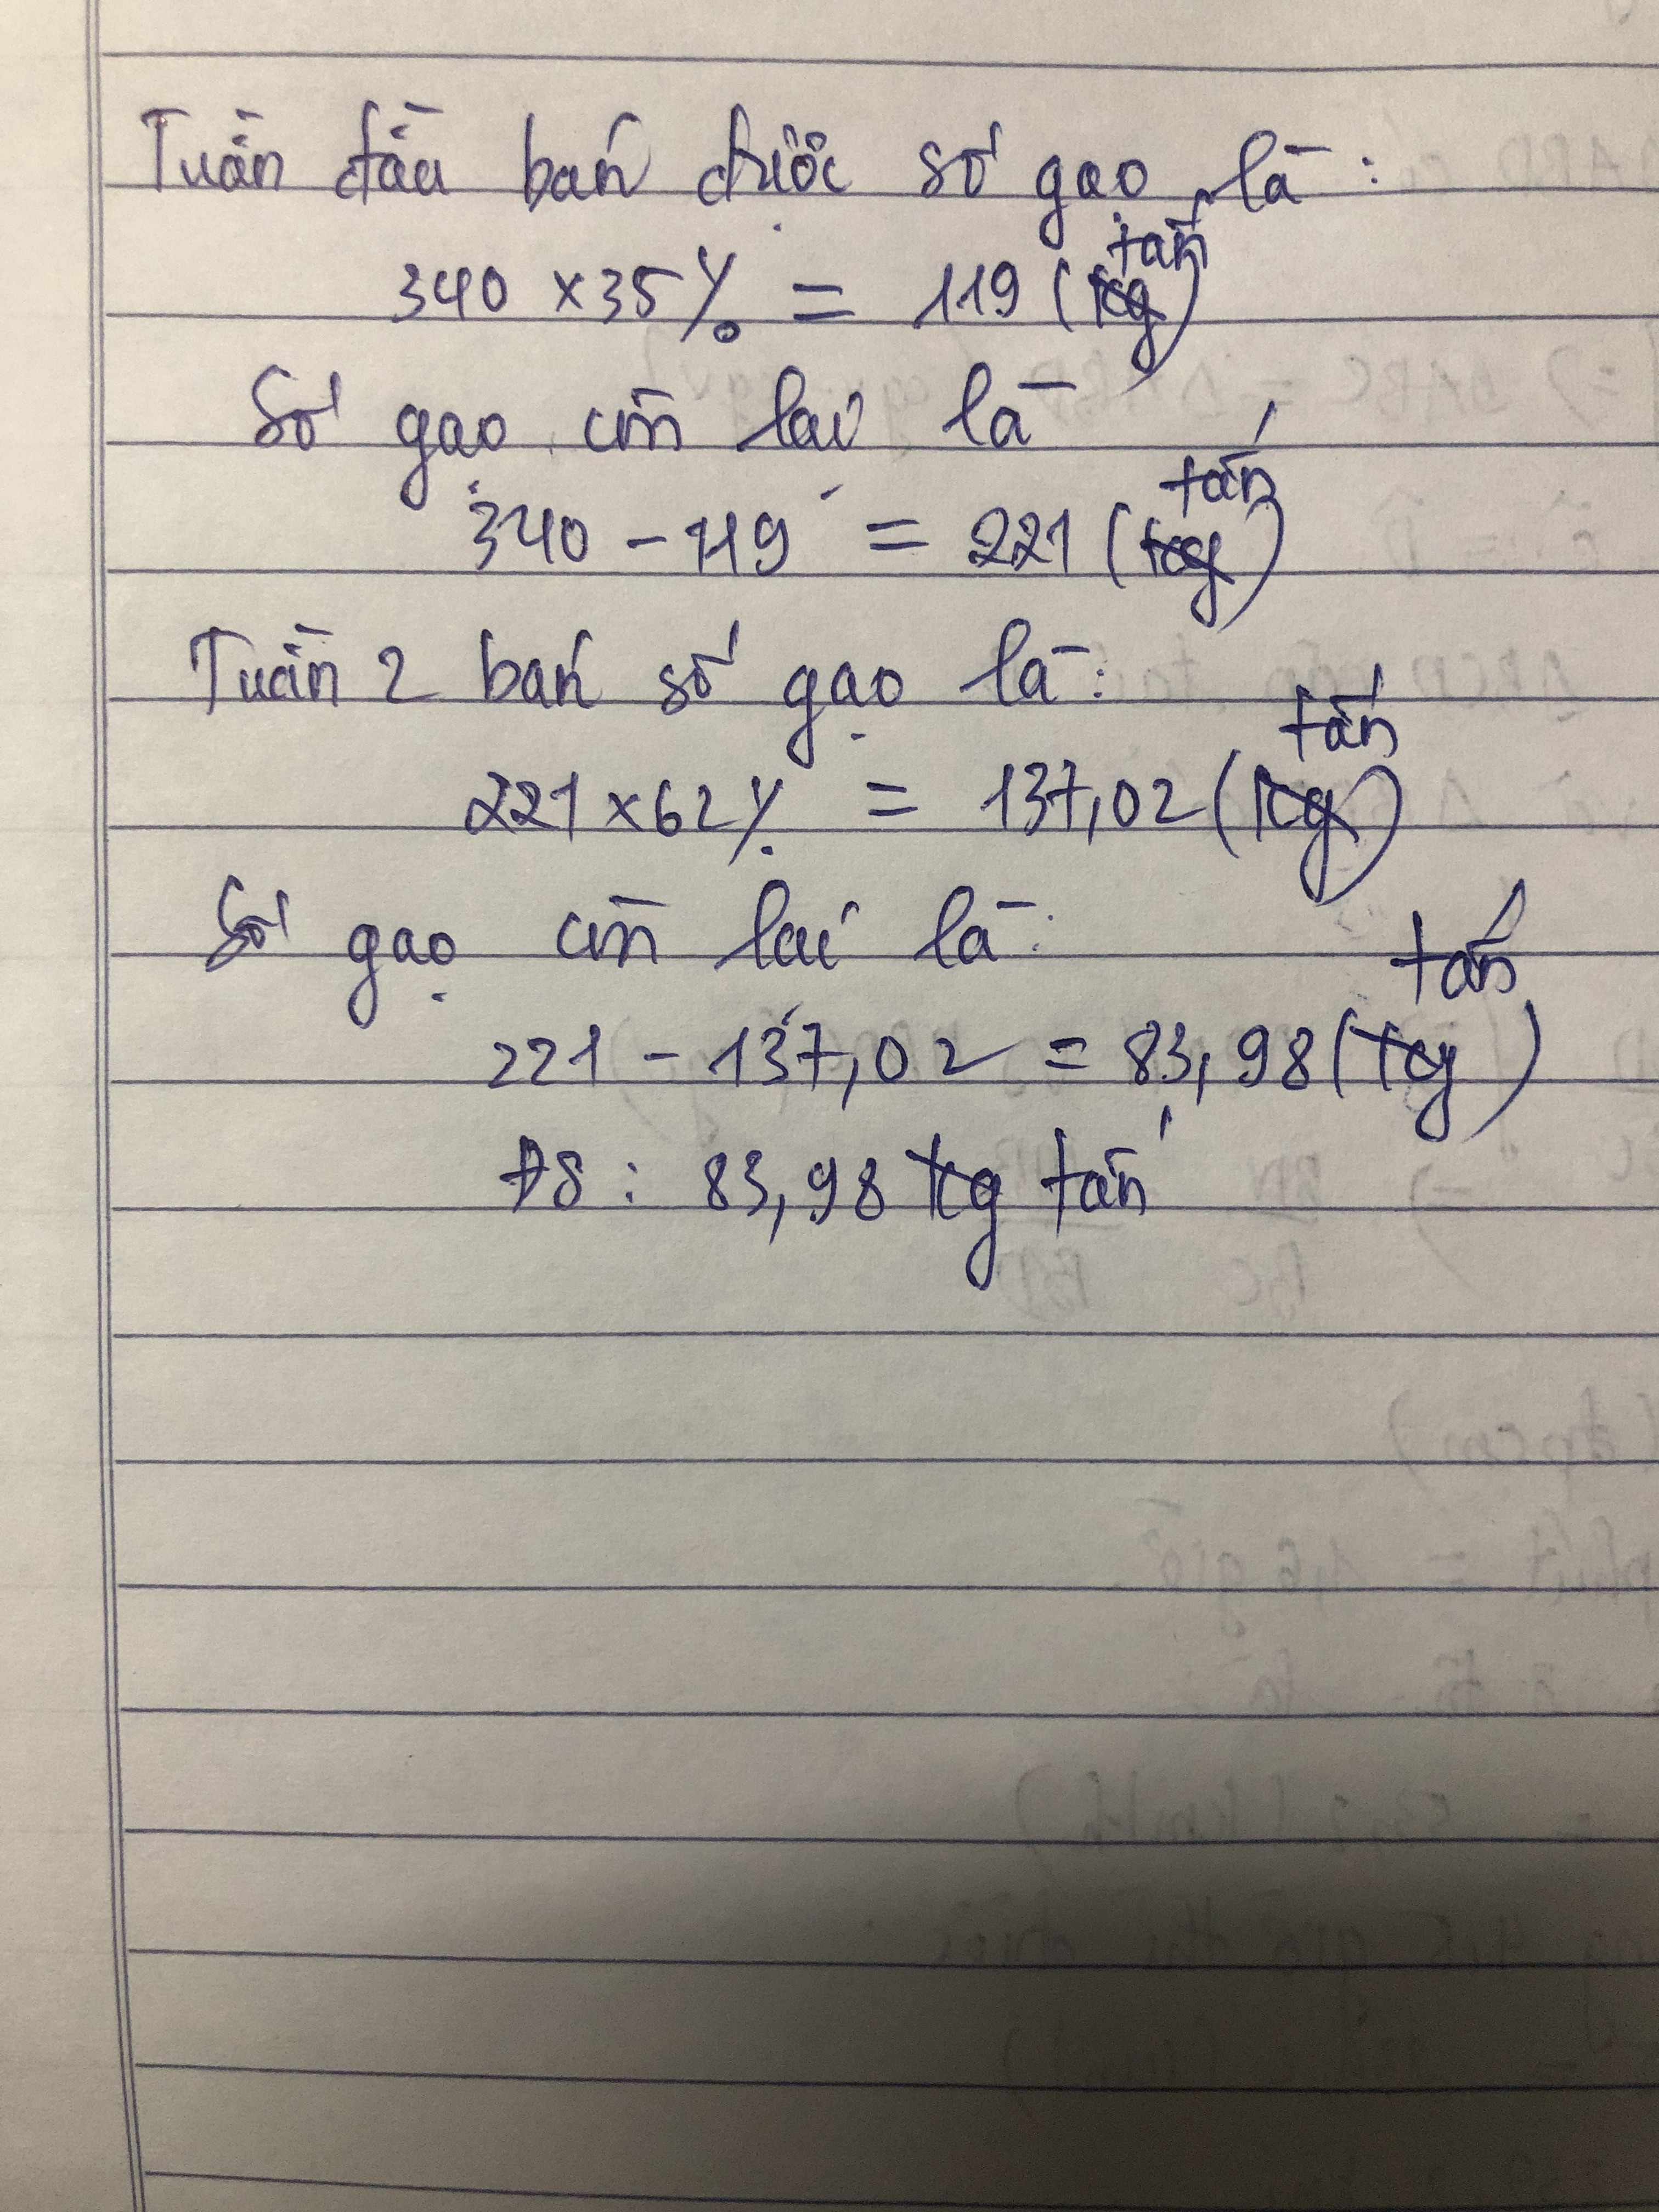 Tuần đầu bán được số gạo là:
340 x 35% = 119 (kg) tấn
Số gạo còn lại là
340 - 119 = 221 (kg) tấn
Tuần 2 bán số gạo là:
221 x 62% = 137,02 (kg) tấn
Số gạo còn lại là:
221 - 137,02 = 83,98 (kg) tấn
ĐS: 83,98 kg tấn